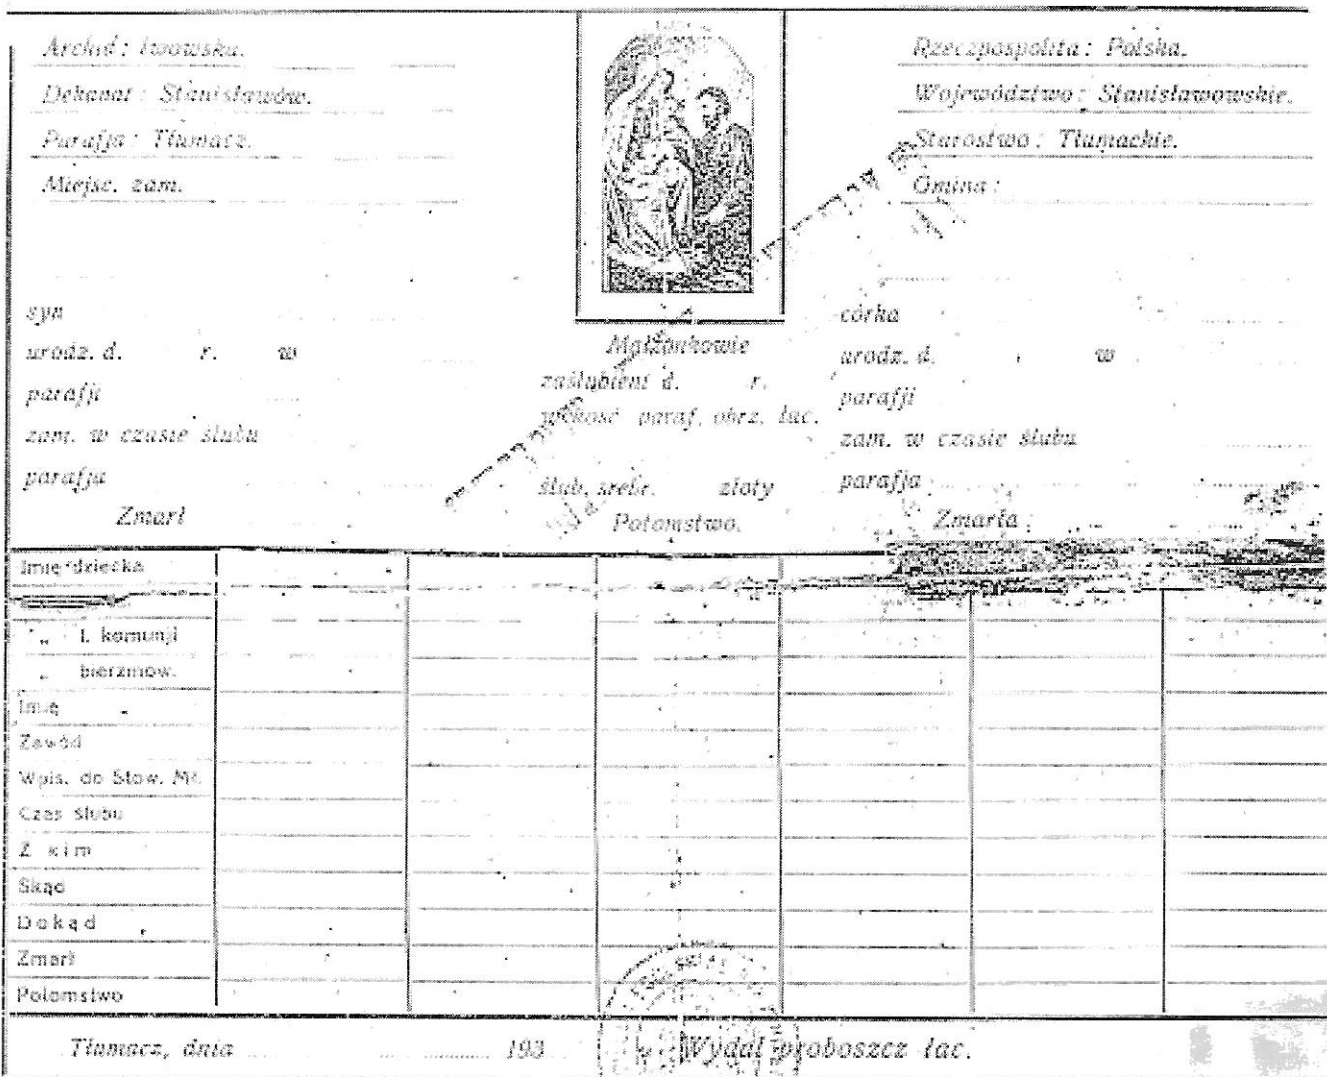 Archid: lwowska.
Dekanat: Stanisławów.
Parafja: Tłumacz.
Miejsc. zam.
Rzeczpospolita: Polska.
Województwo: Stanisławowskie.
Starostwo: Tłumackie.
Gmina:
syn
urodz. d. r. w
parafji
zam. w czasie ślubu
parafja
Zmarł
Małżonkowie
zaślubieni d. r.
paraf. obrz. łac.
ślub. srebr. złoty
Potomstwo.
córka
urodz. d. w
parafji
zam. w czasie ślubu
parafja
Zmarła
Imię dziecka
„ I. komunji
„ bierzmow.
Imię
Zawód
Wpis. do Stow. Mł.
Czas ślubu
Z kim
Skąd
Dokąd
Zmarł
Potomstwo
Tłumacz, dnia 193
Wydał proboszcz łac.